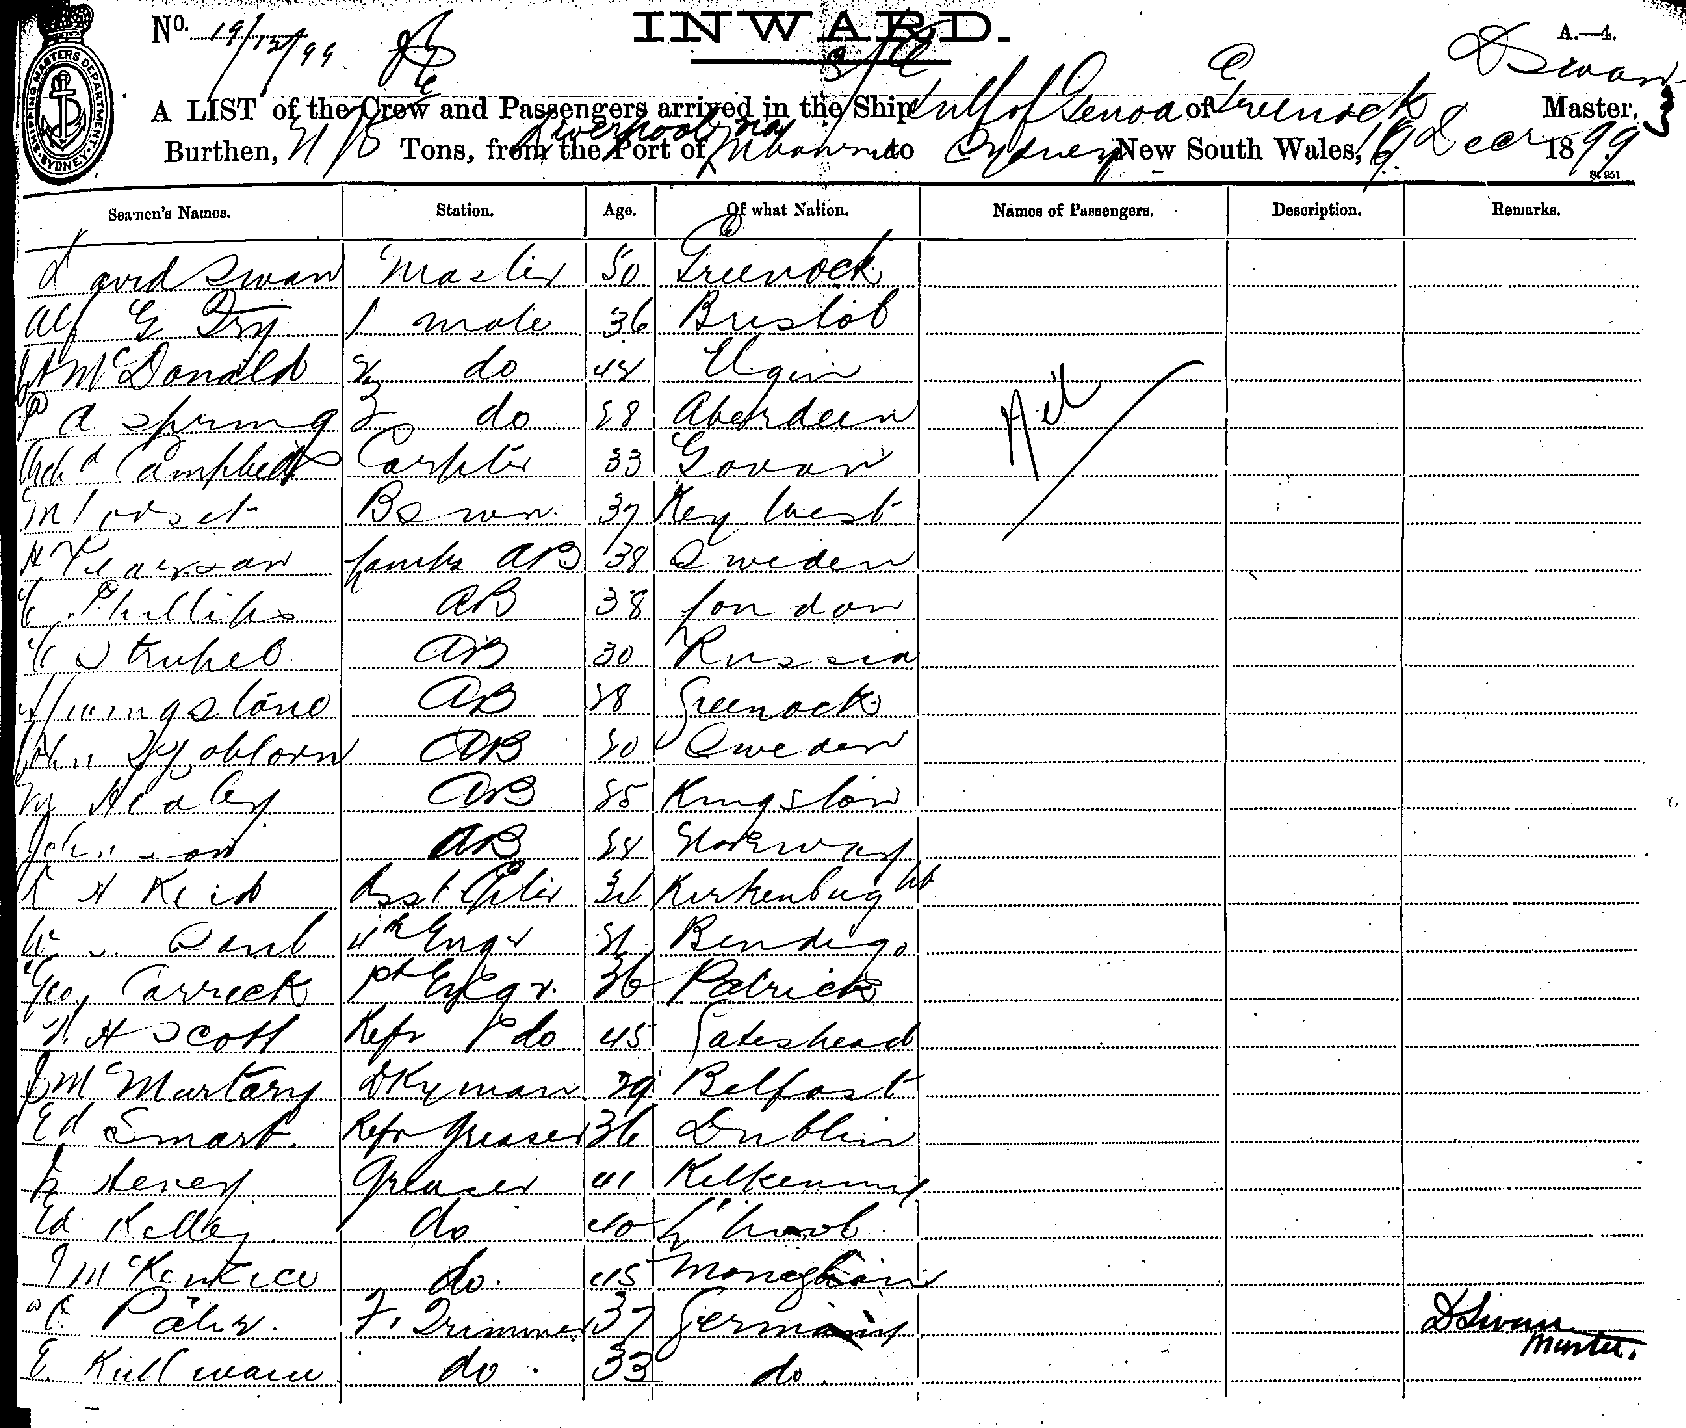 No. 19/12/99
INWARD.
A.—4.
D Swan
A LIST of the Crew and Passengers arrived in the Ship Gulf of Genoa of Greenock Master,
Burthen, Tons, from the Port of Liverpool via to Sydney New South Wales, 19 Decr 1899
SHIPPING MASTERS DEPARTMENT SYDNEY
Seamen's Names. Station. Age. Of what Nation. Names of Passengers. Description. Remarks.
David Swan Master 50 Greenock
Alf G Try 1 mate 36 Bristol
McDonald 2 do 44 Elgin
P A Spring 3 do 28 Aberdeen
Archd Campbell Carpter 33 Govan
Nil
Bswn 37 Key West
Lamps AB 38 Sweden
Phillips AB 38 London
AB 30 Russia
Livingstone AB 28 Greenock
John AB Sweden
Healey AB 25 Kingston
Johnson AB 24 Norway
H Reid Asst 34 Kirkenbught
4th Engr Bendigo
Geo Carrick 1st Engr. 36 Patrick
H Scott Refr do 45 Gateshead
J McMurtary Dkyman 29 Belfast
Ed Smart Refr Greaser 36 Dublin
Heney Greaser 41 Kilkenny
Ed Kelley do 40 L'pool
J McKenzie do. 45 Monaghan
C. Pähr. F. Trimmer 37 Germany
D Swan
Master.
E. do. 33 do.